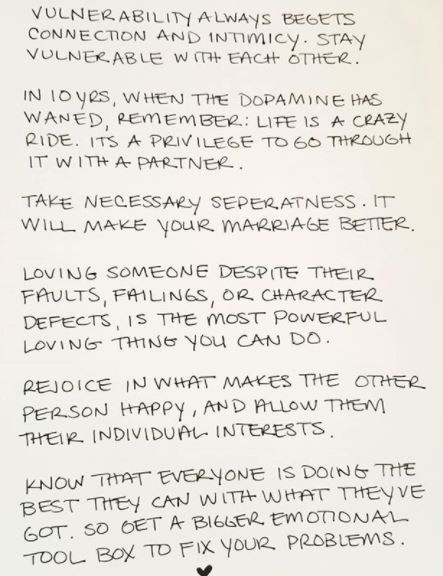 VULNERABILITY ALWAYS BEGETS
CONNECTION AND INTIMICY. STAY
VULNERABLE WITH EACH OTHER.
IN 10 YRS, WHEN THE DOPAMINE HAS
WANED, REMEMBER: LIFE IS A CRAZY
RIDE. ITS A PRIVILEGE TO GO THROUGH
IT WITH A PARTNER.
TAKE NECESSARY SEPERATNESS. IT
WILL MAKE YOUR MARRIAGE BETTER.
LOVING SOMEONE DESPITE THEIR
FAULTS, FAILINGS, OR CHARACTER
DEFECTS, IS THE MOST POWERFUL
LOVING THING YOU CAN DO.
REJOICE IN WHAT MAKES THE OTHER
PERSON HAPPY, AND ALLOW THEM
THEIR INDIVIDUAL INTERESTS.
KNOW THAT EVERYONE IS DOING THE
BEST THEY CAN WITH WHAT THEYVE
GOT. SO GET A BIGGER EMOTIONAL
TOOL BOX TO FIX YOUR PROBLEMS.